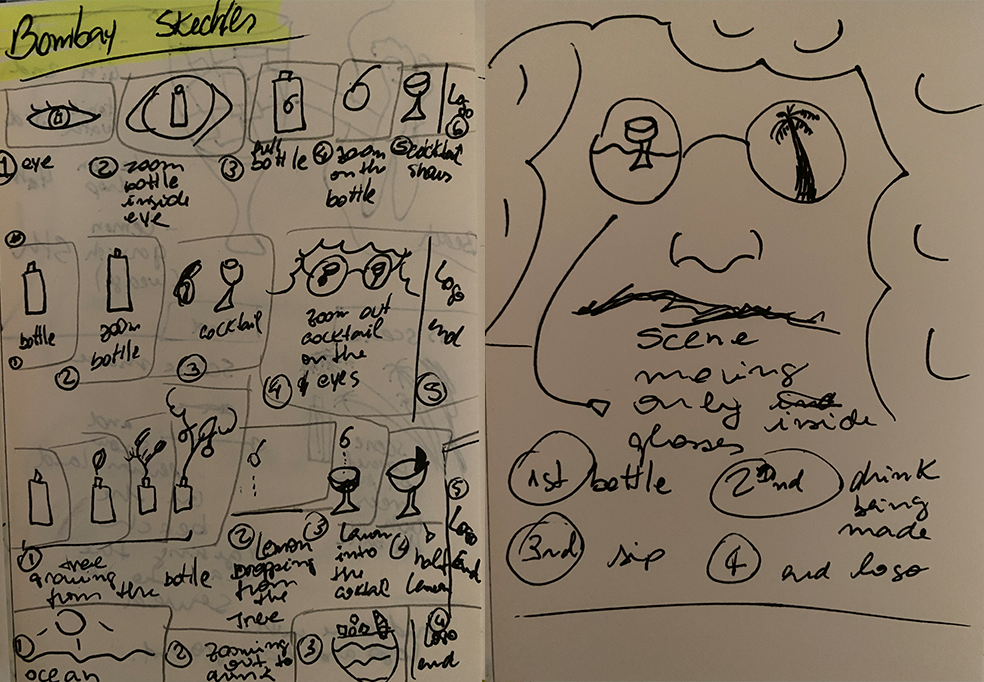 Bombay Skeches
Logo
6
1 eye
2 zoom
bottle
inside
eye
3 full
bottle
4 zoom
on the
bottle
5 cocktail
shows
bottle
1
zoom
bottle
2
cocktail
3
zoom out
cocktail
on the
eyes
4
Logo
end
5
1 tree
growing
from the bottle
2 Lemon
dropping
from
the
Tree
3 Lemon
into
the
coktail
4 half
lemon
5
Logo
end
1
ocean
2 zooming
out to
drink
3
4
Logo
end
Scene
moving
only inside
glasses
1st bottle
2nd drink
being
made
3rd sip
4 end logo